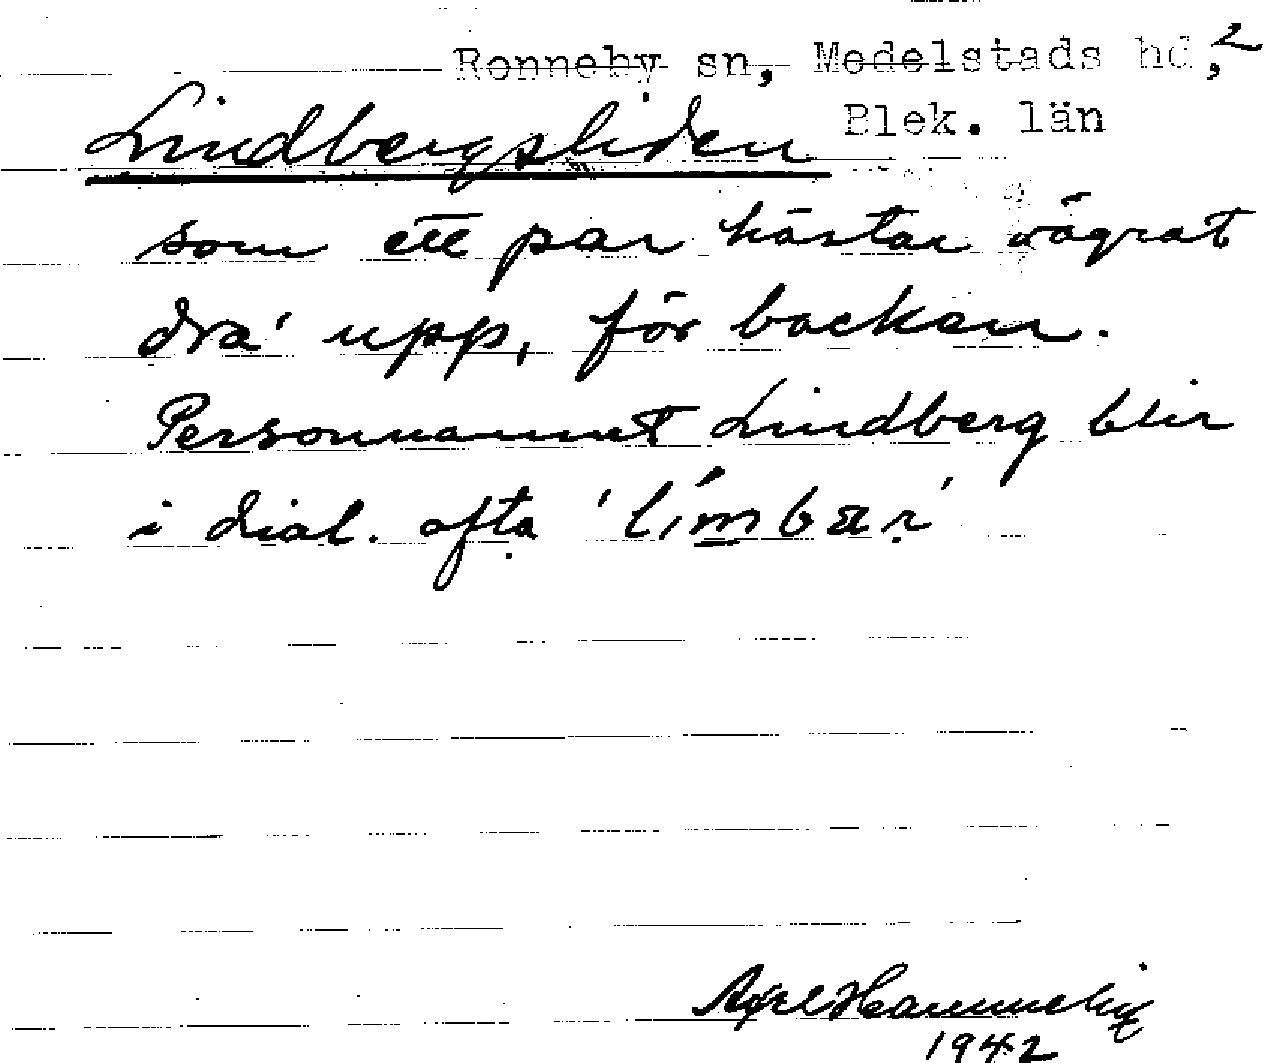 Ronneby sn, Medelstads hd, 2
Blek. län
Lindbergsliden
som ett par hästar vägrat
dra' upp, för backen.
Personnamnet Lindberg blir
i dial. ofta 'límbær'
1942